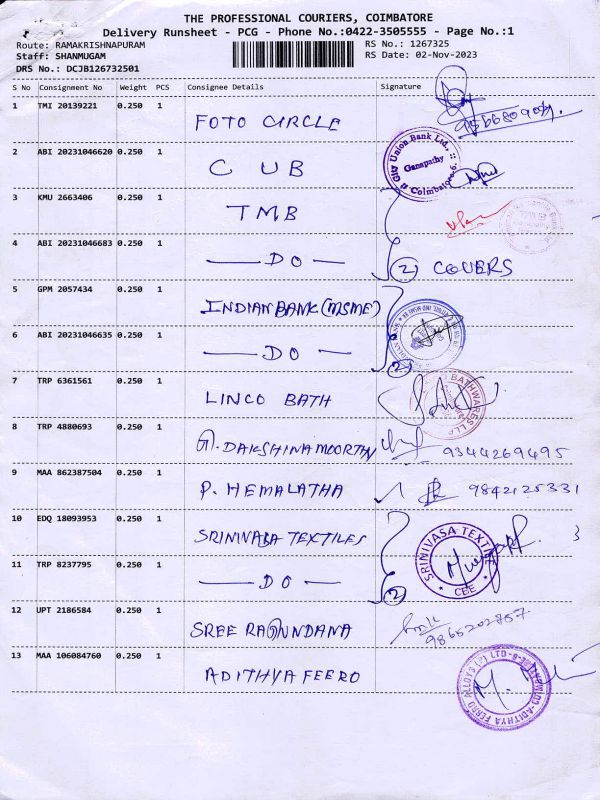 THE PROFESSIONAL COURIERS, COIMBATORE
Delivery Runsheet - PCG - Phone No.:0422-3505555 - Page No.:1
Route: RAMAKRISHNAPURAM RS No.: 1267325
Staff: SHANMUGAM RS Date: 02-Nov-2023
DRS No.: DCJB126732501
S No Consignment No Weight PCS Consignee Details Signature
1 TMI 20139221 0.250 1 FOTO CIRCLE
2 ABI 20231046620 0.250 1 CUB City Union Bank Ltd., Ganapathy Coimbatore-6.
3 KMU 2663406 0.250 1 TMB
4 ABI 20231046683 0.250 1 — DO — (2) COVERS
5 GPM 2057434 0.250 1 INDIAN BANK (MSME)
6 ABI 20231046635 0.250 1 — DO — (2)
7 TRP 6361561 0.250 1 LINCO BATH BATHWARES LLP
8 TRP 4880693 0.250 1 G. DAKSHINAMOORTHY 9344269495
9 MAA 862387504 0.250 1 P. HEMALATHA 9842125331
10 EDQ 18093953 0.250 1 SRINIVASA TEXTILES SRINIVASA TEXTILE CBE
11 TRP 8237795 0.250 1 — DO — (2)
12 UPT 2186584 0.250 1 SREE 9865202857
13 MAA 106084760 0.250 1 ADITHYA FEERO ADITHYA FERRO ALLOYS (P) LTD